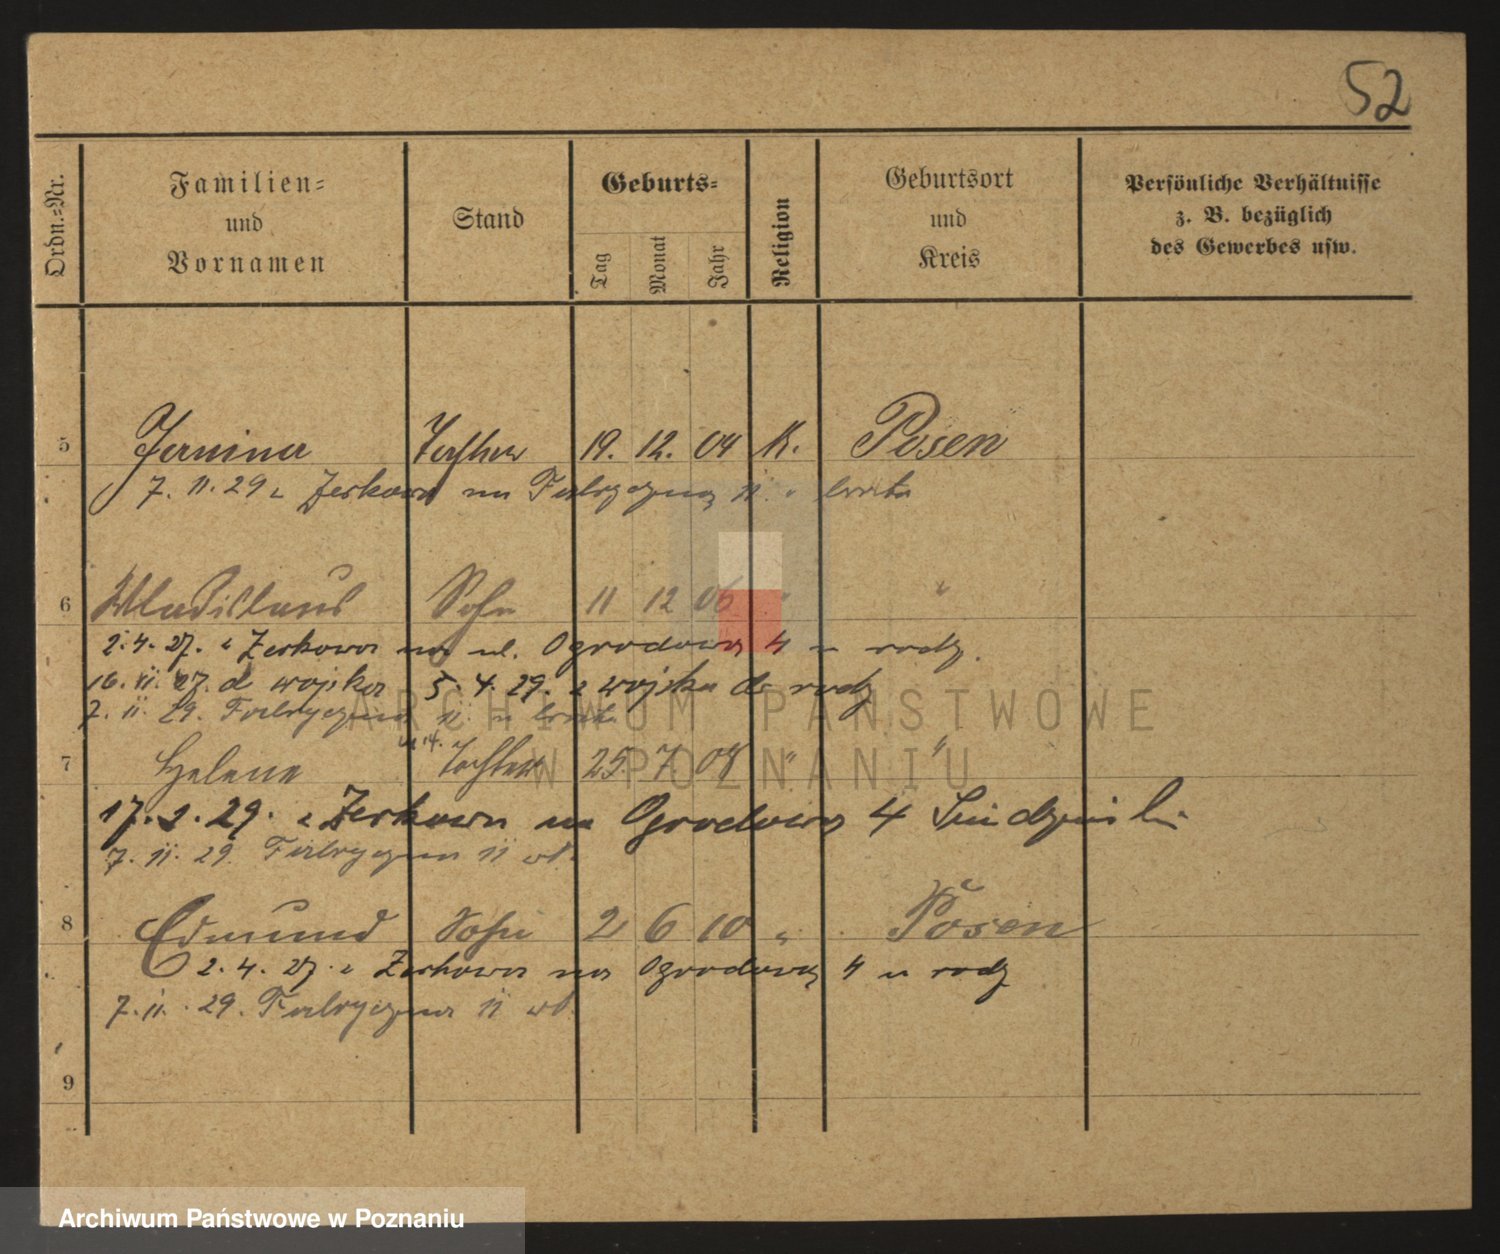 52
Ordn.=Nr.
Familien= und Vornamen
Stand
Geburts=
Tag
Monat
Jahr
Religion
Geburtsort und Kreis
Persönliche Verhältnisse z. B. bezüglich des Gewerbes usw.
5 Janina Tochter 19. 12. 04 K. Posen
7. 11. 29 z Żerkowa na Fabryczna 11.
6 Wladislaus Sohn 11 12 06 " "
2. 4. 27. z Żerkowa na ul. Ogrodowa 4 u rodz.
16. 11. 27. d wojska 5. 4. 29. z wojska do rodz
7. 11. 29. Fabryczna 11.
7 Helene Tochter 25 7 08 " "
17. 2. 29. z Żerkowa na Ogrodowa 4
7. 11. 29. Fabryczna 11
8 Edmund Sohn 2 6 10 " Posen
2. 4. 27. z Żerkowa na Ogrodowa 4 u rodz
7. 11. 29. Fabryczna 11
9
ARCHIWUM PAŃSTWOWE
W POZNANIU
Archiwum Państwowe w Poznaniu